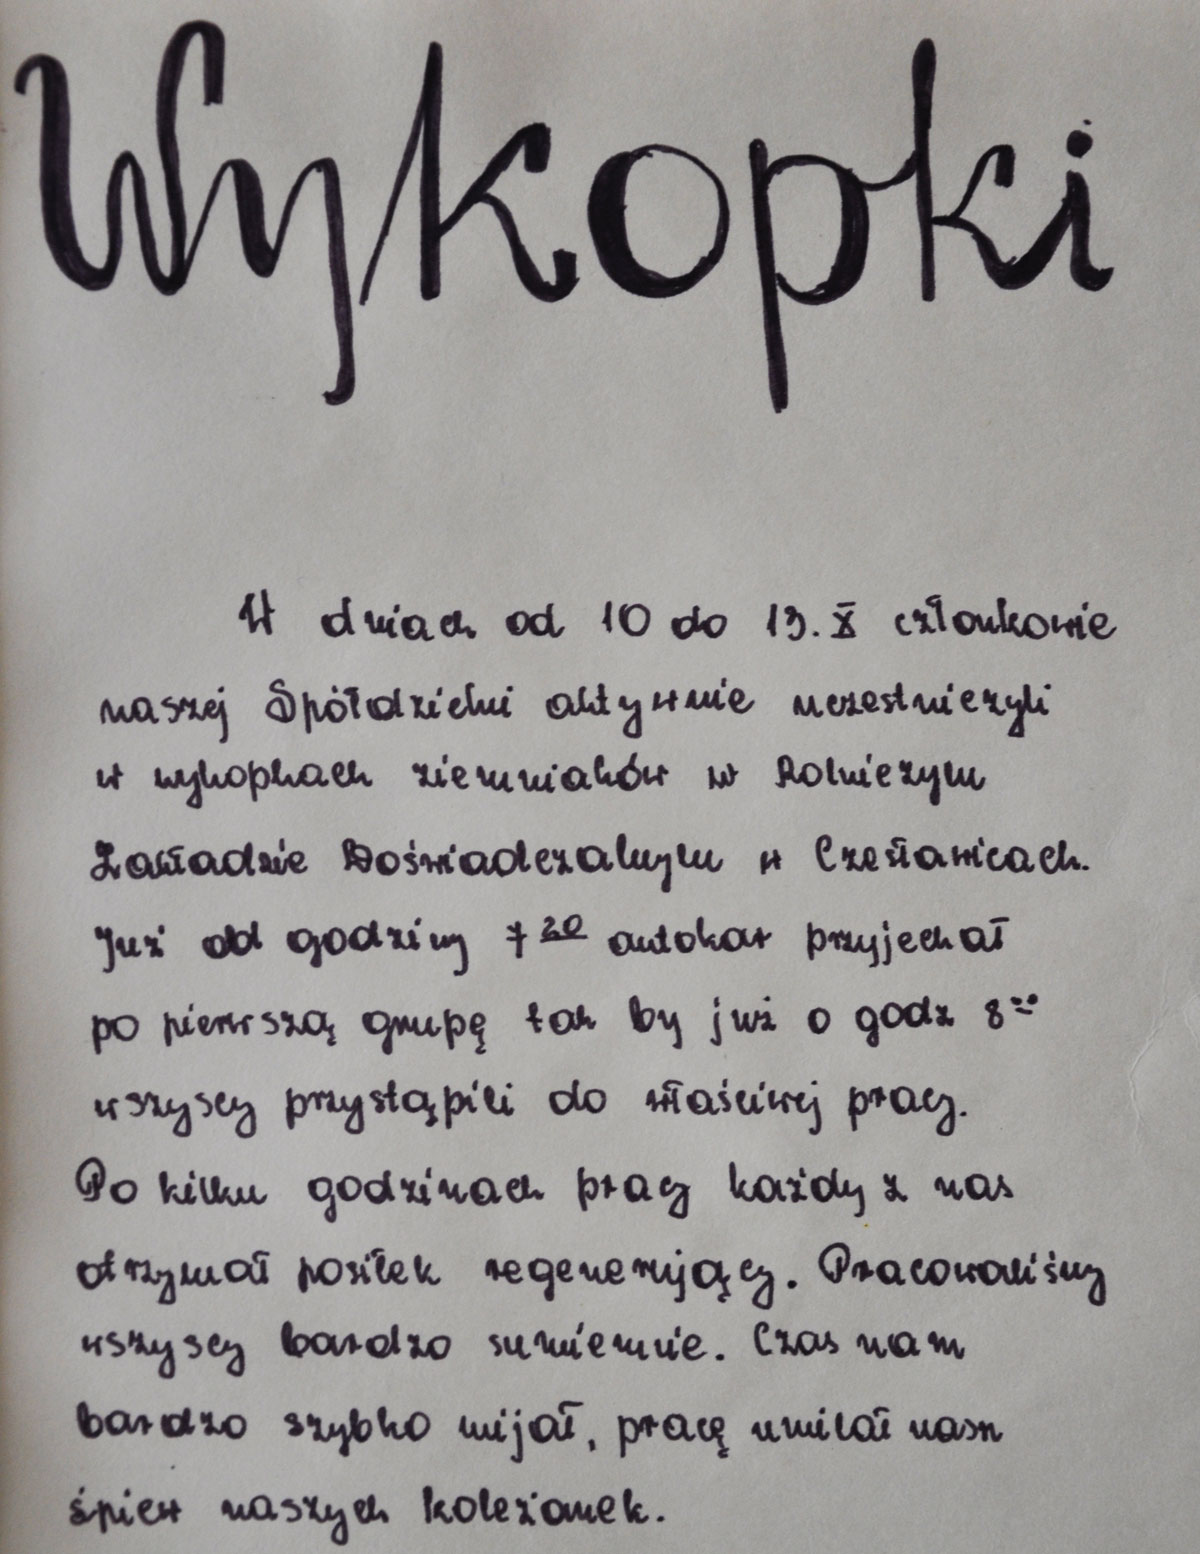 Wykopki
W dniach od 10 do 13. X członkowie
naszej Spółdzielni aktywnie uczestniczyli
w wykopkach ziemniaków w Rolniczym
Zakładzie Doświadczalnym w Czesławicach.
Już od godziny 7 20 autokar przyjechał
po pierwszą grupę tak by już o godz 8 00
wszyscy przystąpili do właściwej pracy.
Po kilku godzinach pracy każdy z nas
otrzymał posiłek regenerujący. Pracowaliśmy
wszyscy bardzo sumiennie. Czas nam
bardzo szybko mijał, pracę umilał nam
śpiew naszych koleżanek.